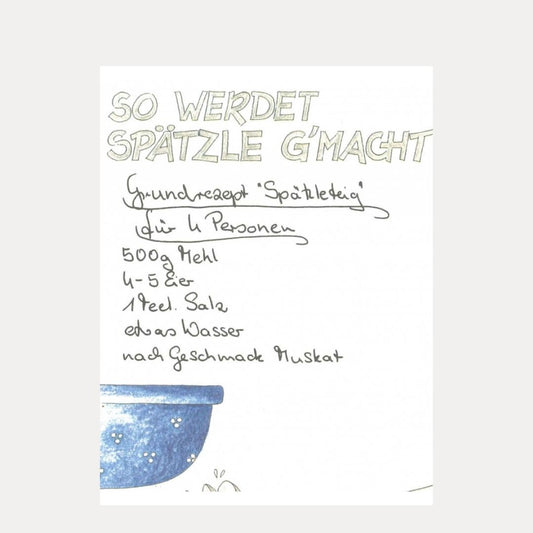 SO WERDET
SPÄTZLE G'MACHT
Grundrezept "Spätzleteig"
für 4 Personen
500g Mehl
4-5 Eier
1 Teel. Salz
etwas Wasser
nach Geschmack Muskat